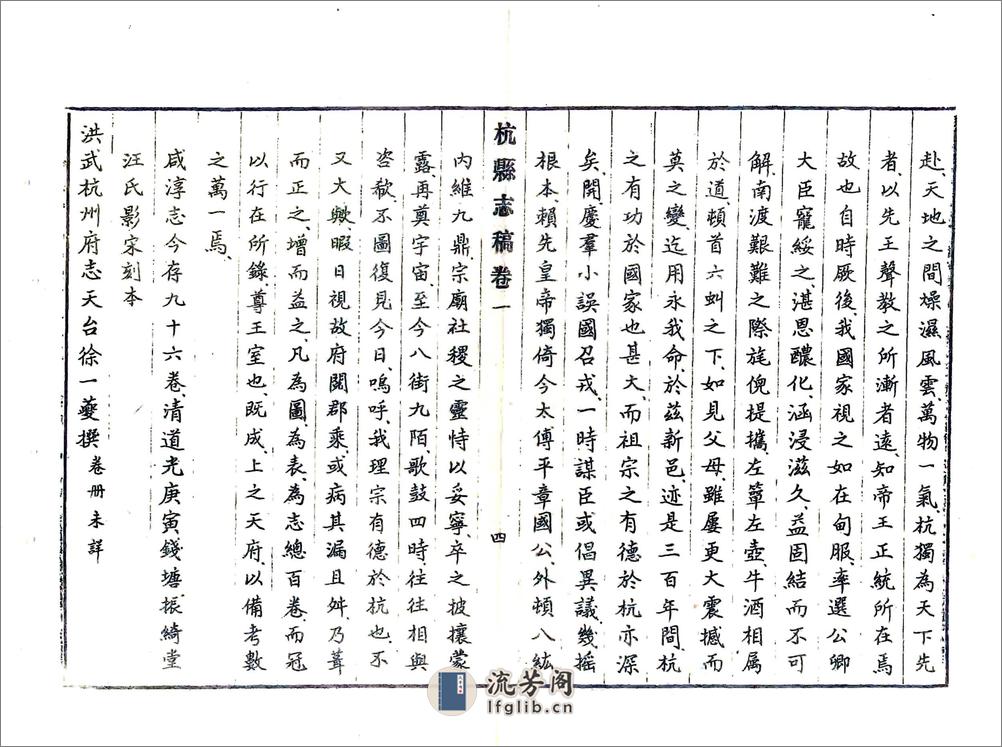 赴、天地之間燥濕風雲萬物一氣、杭獨為天下先
者、以先王聲教之所漸者遠、知帝王正統所在焉
故也自時厥後、我國家視之如在甸服、率選公卿
大臣寵綏之、湛恩醲化、涵浸滋久、益固結而不可
解、南渡艱難之際、旄倪提攜、左簞左壺、牛酒相屬
於道、頓首六虯之下、如見父母、雖屢更大震撼而
莫之變、迄用永我命、於茲新邑、迹是三百年間、杭
之有功於國家也甚大、而祖宗之有德於杭亦深
矣、開慶羣小誤國召戎、一時謀臣或倡異議、幾摇
根本、賴先皇帝獨倚今太傅平章國公、外頓八紘
杭縣志稿卷一
四
內維九鼎、宗廟社稷之靈恃以妥寧、卒之披攘蒙
露、再奠宇宙、至今八街九陌、歌鼓四時、往往相與
咨歎、不圖復見今日、嗚呼、我理宗有德於杭也、不
又大歟、暇日視故府閱郡乘、或病其漏且舛、乃葺
而正之、增而益之、凡為圖、為表、為志總百卷、而冠
以行在所錄、尊王室也、既成、上之天府、以備考數
之萬一焉、
咸淳志今存九十六卷、清道光庚寅、錢塘振綺堂
汪氏影宋刻本
洪武杭州府志天台徐一夔撰 卷册未詳
流芳阁
lfglib.cn